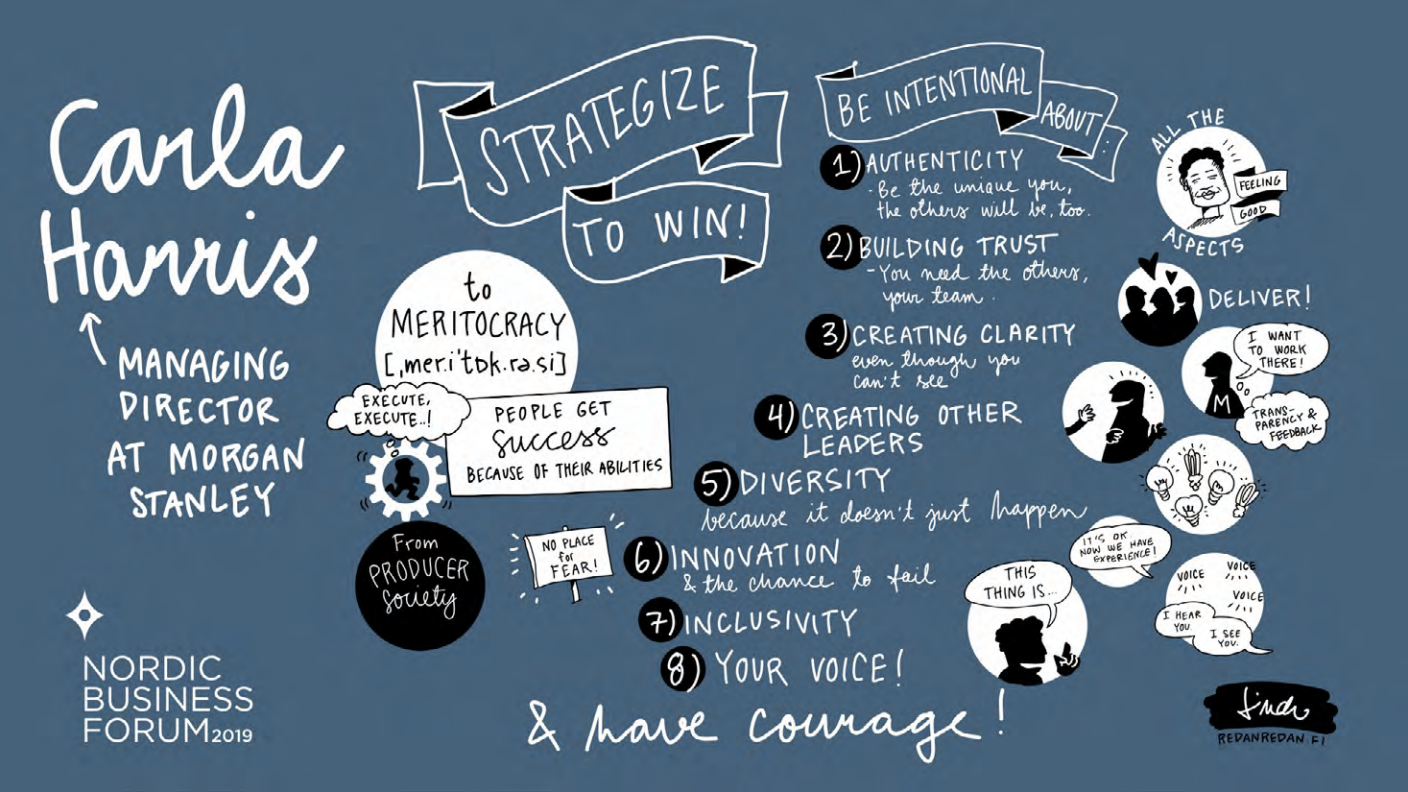 Carla
Harris
MANAGING
DIRECTOR
AT MORGAN
STANLEY
NORDIC
BUSINESS
FORUM2019
STRATEGIZE
TO WIN!
to
MERITOCRACY
[ˌmer.iˈtɒk.rə.si]
EXECUTE,
EXECUTE..!
PEOPLE GET
success
BECAUSE OF THEIR ABILITIES
From
PRODUCER
society
NO PLACE
for
FEAR!
BE INTENTIONAL
ABOUT...
1) AUTHENTICITY
- Be the unique you,
the others will be, too.
2) BUILDING TRUST
- You need the others,
your team.
3) CREATING CLARITY
even though you
can't see
4) CREATING OTHER
LEADERS
5) DIVERSITY
because it doesn't just happen
6) INNOVATION
& the chance to fail
7) INCLUSIVITY
8) YOUR VOICE!
& have courage!
ALL THE
FEELING
GOOD
ASPECTS
DELIVER!
I WANT
TO WORK
THERE!
M
TRANS-
PARENCY &
FEEDBACK
IT'S OK
NOW WE HAVE
EXPERIENCE!
THIS
THING IS...
VOICE
VOICE
VOICE
I HEAR
YOU.
I SEE
YOU.
REDANREDAN.FI